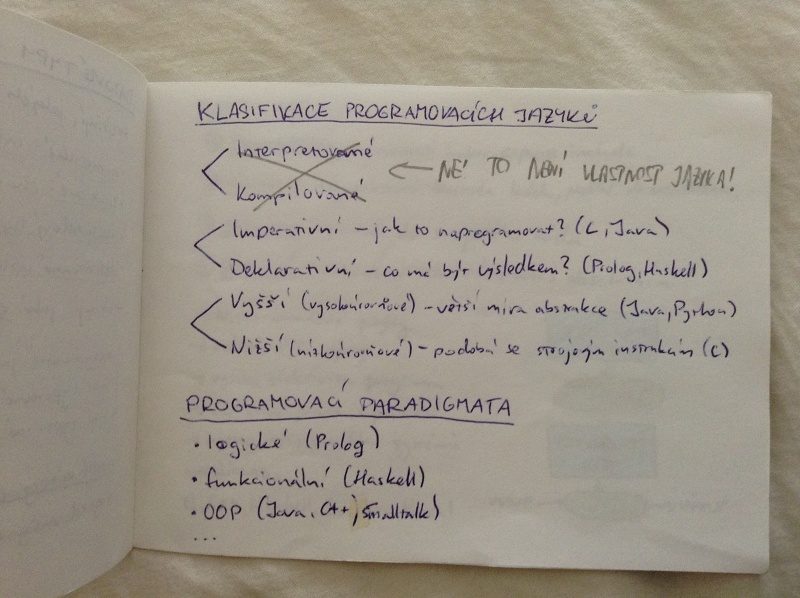 KLASIFIKACE PROGRAMOVACÍCH JAZYKŮ
Interpretované
Kompilované
← NE! TO NENÍ VLASTNOST JAZYKA!
Imperativní – jak to naprogramovat? (C, Java)
Deklarativní – co má být výsledkem? (Prolog, Haskell)
Vyšší (vysokoúrovňové) – větší míra abstrakce (Java, Python)
Nižší (nízkoúrovňové) – podobá se strojovým instrukcím (C)
PROGRAMOVACÍ PARADIGMATA
• logické (Prolog)
• funkcionální (Haskell)
• OOP (Java, C++, Smalltalk)
...